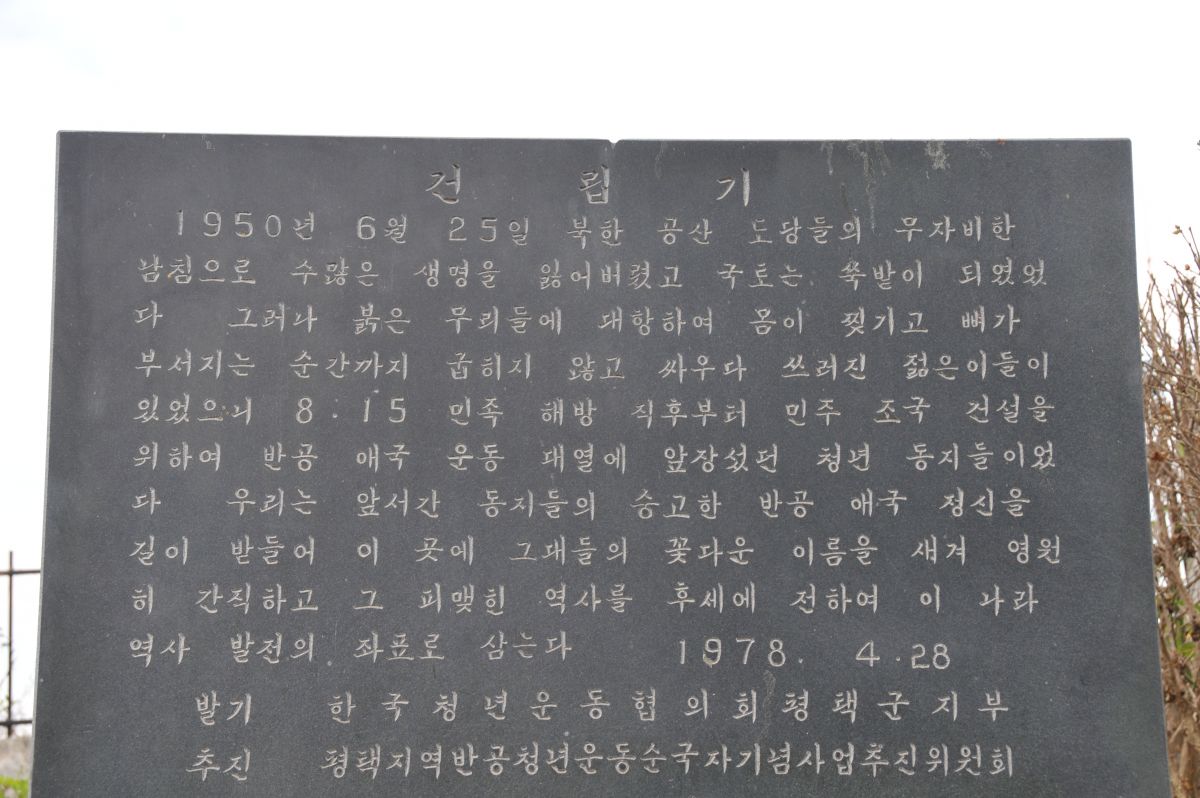 건립기
1950년 6월 25일 북한 공산 도당들의 무자비한
남침으로 수많은 생명을 잃어버렸고 국토는 쑥밭이 되였었
다 그러나 붉은 무리들에 대항하여 몸이 찢기고 뼈가
부서지는 순간까지 굽히지 않고 싸우다 쓰러진 젊은이들이
있었으니 8·15 민족 해방 직후부터 민주 조국 건설을
위하여 반공 애국 운동 대열에 앞장섰던 청년 동지들이었
다 우리는 앞서간 동지들의 숭고한 반공 애국 정신을
길이 받들어 이 곳에 그대들의 꽃다운 이름을 새겨 영원
히 간직하고 그 피맺힌 역사를 후세에 전하여 이 나라
역사 발전의 좌표로 삼는다 1978. 4.28
발기 한국청년운동협의회평택군지부
추진 평택지역반공청년운동순국자기념사업추진위원회